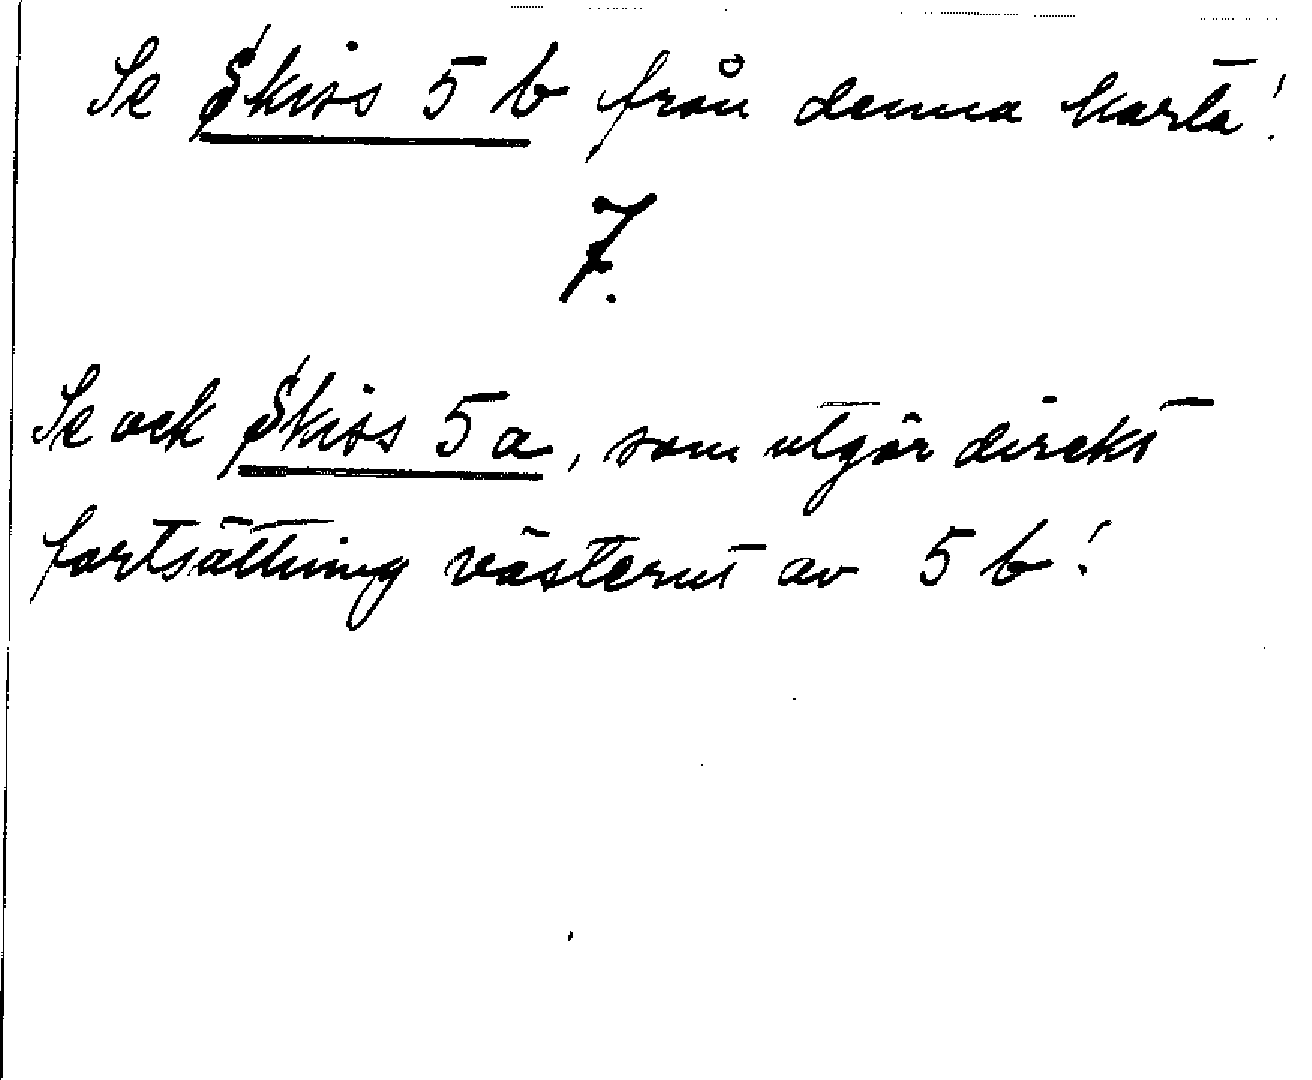 Se Skiss 5 b från denna karta!
7.
Se ock Skiss 5 a, som utgör direkt
fortsättning västerut av 5 b!